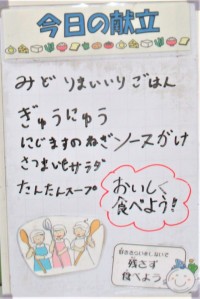 今日の献立
みどりまいいりごはん
ぎゅうにゅう
にじますのねぎソースがけ
さつまいもサラダ
たんたんスープ
おいしく
食べよう!!
好ききらいをしないで
残さず
食べよう